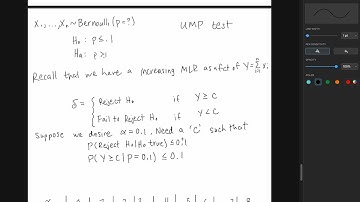 X₁,...,Xₙ ~ Bernoulli (p=?)    UMP test
H₀ : p ≤ .1
Hₐ : p > .1
Recall that we have a increasing MLR as a fct of Y = Σⁿᵢ₌₁ xᵢ
δ = { Reject H₀ if Y ≥ C
Fail to Reject H₀ if Y < C
Suppose we desire α = 0.1. Need a 'c' such that
P(Reject H₀ | H₀ true) ≤ 0.1
P(Y ≥ C | P = 0.1) ≤ 0.1